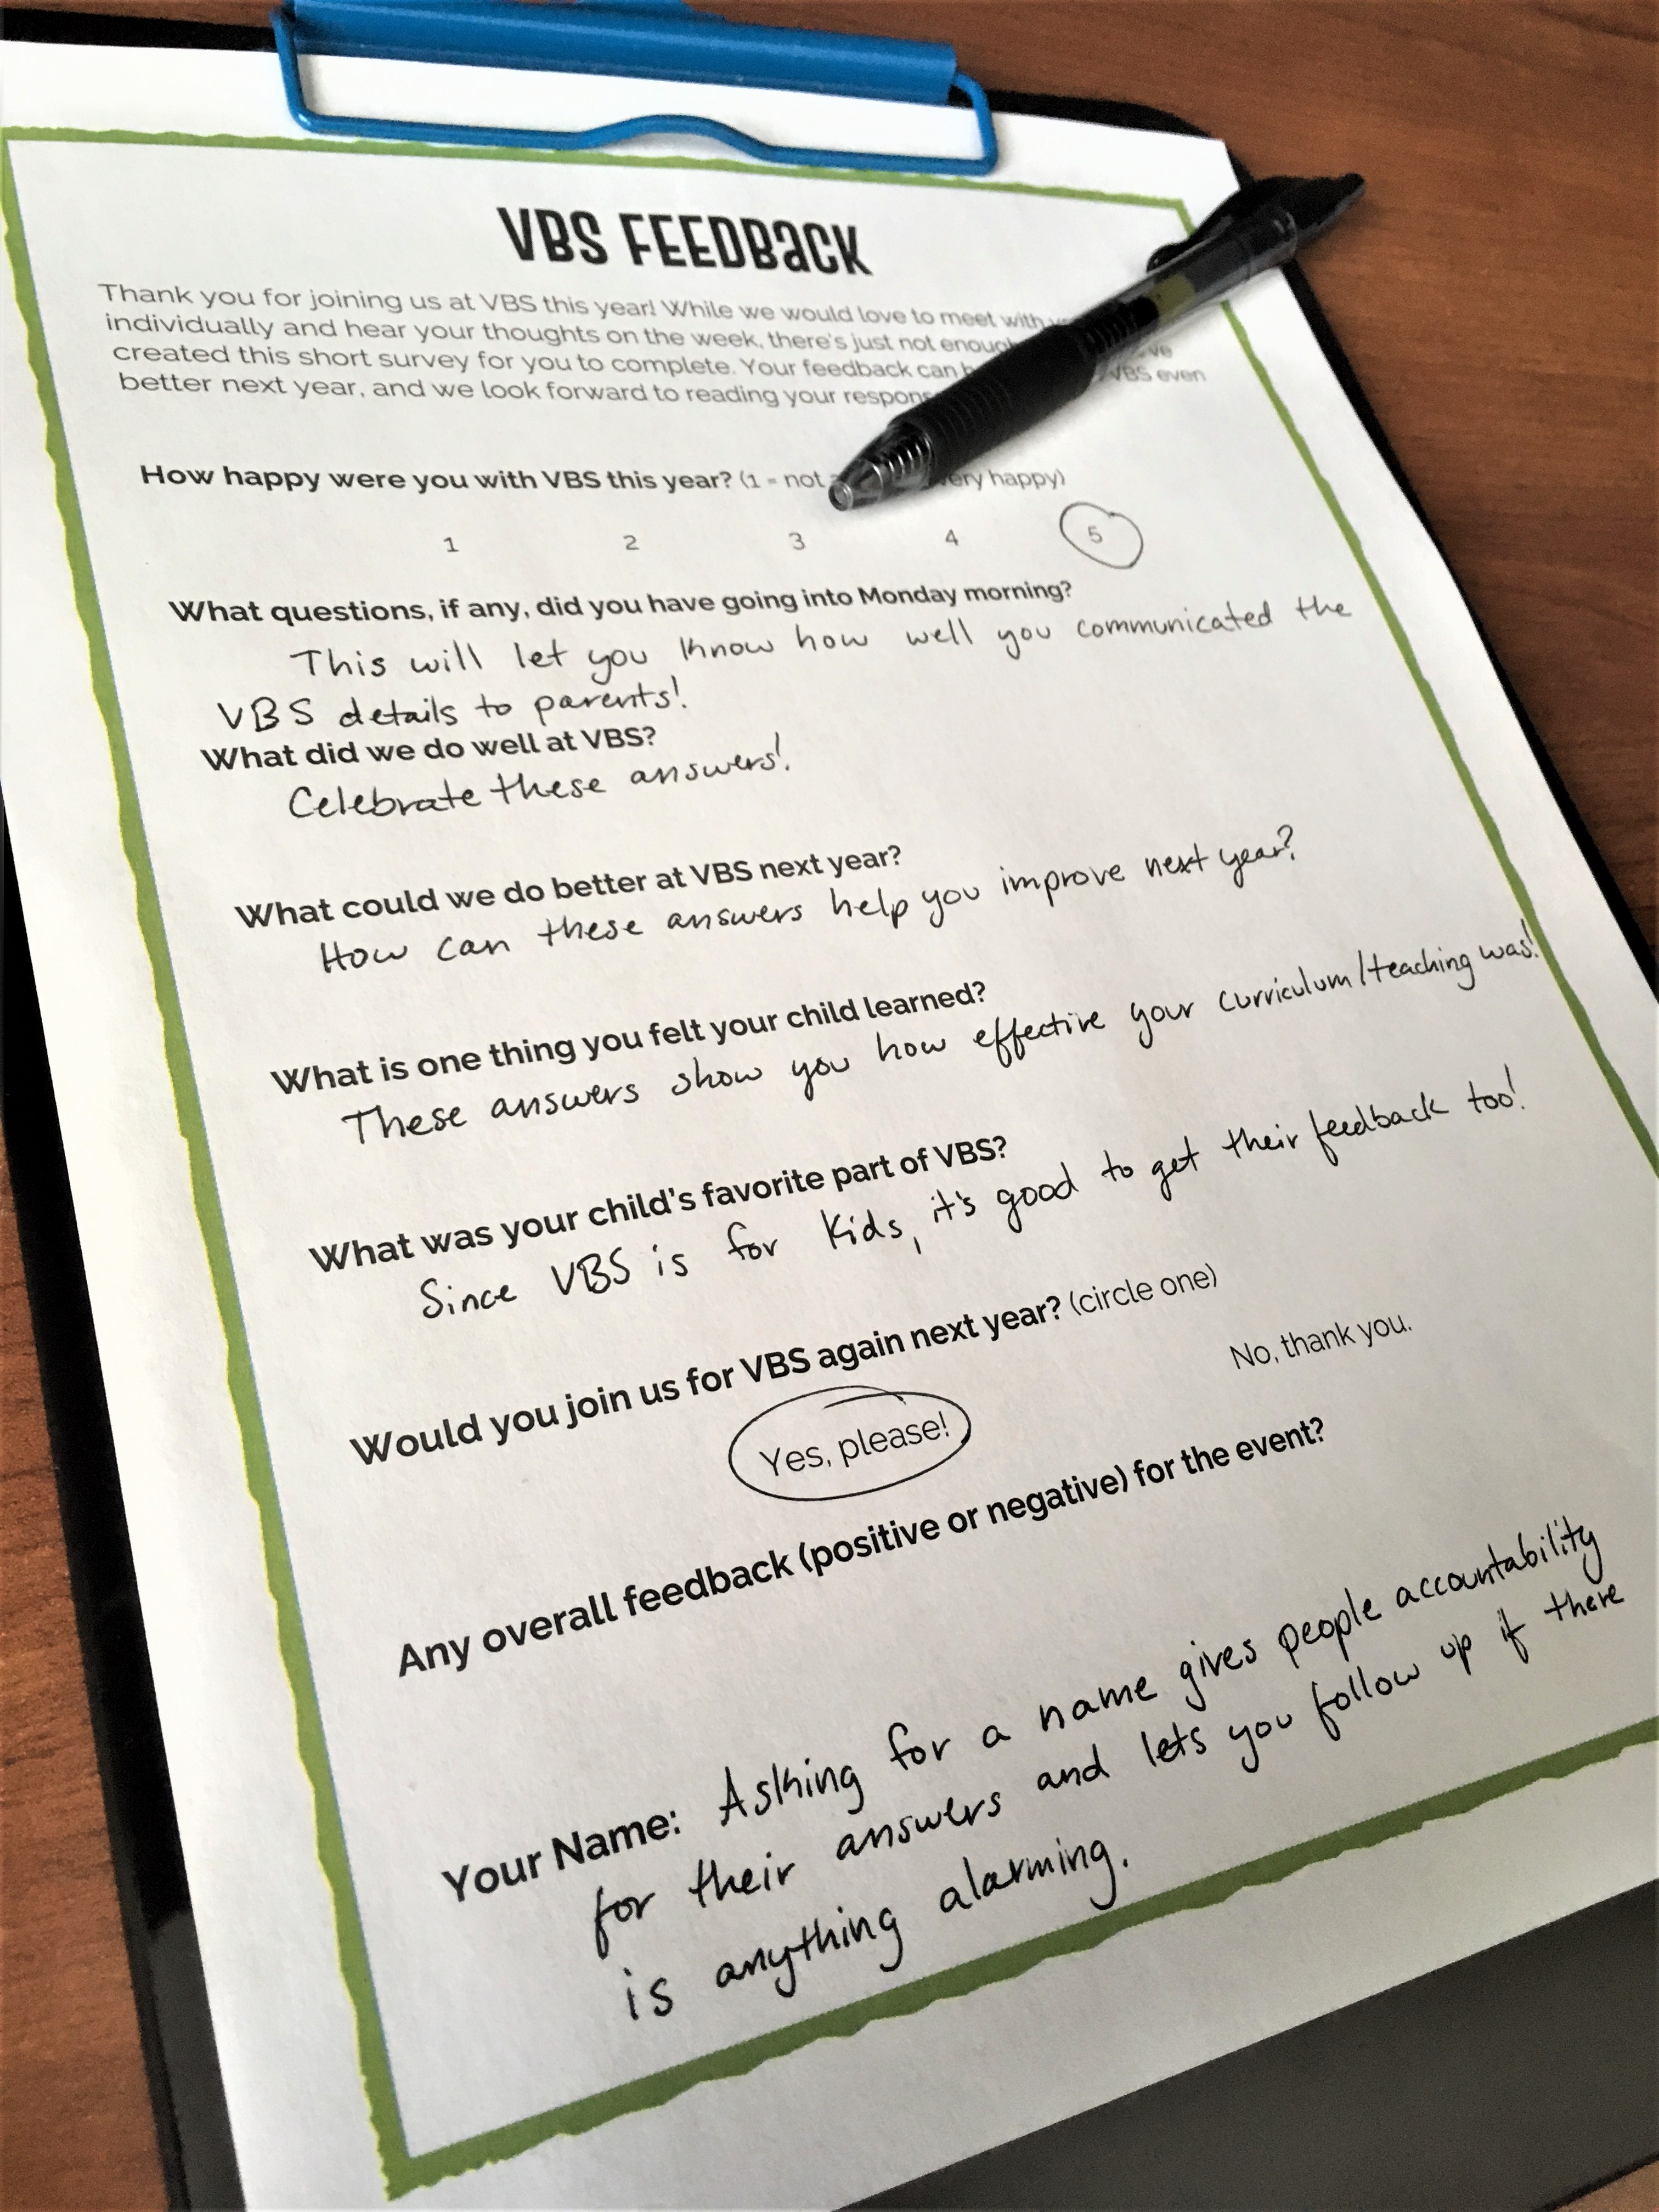 VBS FEEDBACK
Thank you for joining us at VBS this year! While we would love to meet with
individually and hear your thoughts on the week, there's just not enough
created this short survey for you to complete. Your feedback can VBS even
better next year, and we look forward to reading your
How happy were you with VBS this year? (1 = not happy)
1 2 3 4 5
What questions, if any, did you have going into Monday morning?
This will let you know how well you communicated the
VBS details to parents!
What did we do well at VBS?
Celebrate these answers!
What could we do better at VBS next year?
How can these answers help you improve next year?
What is one thing you felt your child learned?
These answers show you how effective your curriculum/teaching was!
What was your child's favorite part of VBS?
Since VBS is for kids, it's good to get their feedback too!
Would you join us for VBS again next year? (circle one)
Yes, please! No, thank you.
Any overall feedback (positive or negative) for the event?
Your Name: Asking for a name gives people accountability
for their answers and lets you follow up if there
is anything alarming.